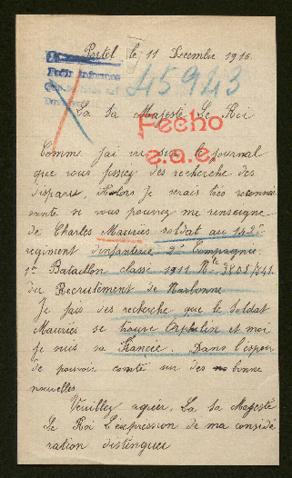 Portel, le 11 Decembre 1916
45943
La sa Majesté Le Roi
Fecho
e.a.e.
Comme j'ai vu sur le journal
que vous fassiez des recherche des
disparus, Alors Je serais très reconnai
sante si vous pouvez me renseigne
de Charles Mauriès soldat au 142e
regiment d'infanterie 2e Compagnie
1er Bataillon classe 1911 Nle
du Recrutement de Narbonne
Je fais des recherche que le Soldat
Mauriès se trouve Orphelin et moi
je suis sa Fiancée. Dans l'espoir
de pouvoir conté sur des bonne
nouvelles
Veuillez agréer, La sa Majesté
Le Roi l'expression de ma considé
ration distinguée